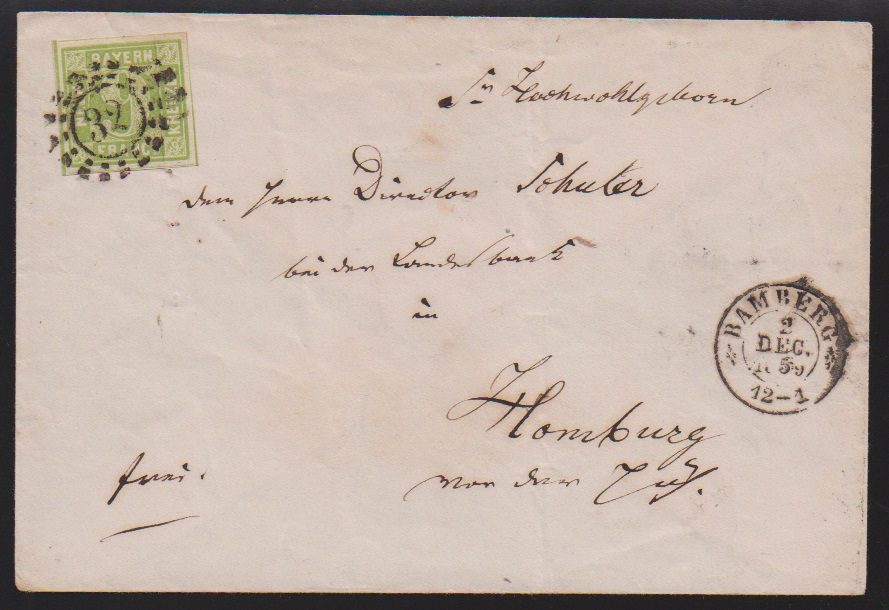 BAYERN
9
KREUZER
FRANCO
32
Sr Hochwohlgeborn
dem Herrn Director Schuler
bei der Landesbank
in
Homburg
vor der Höh.
frei.
BAMBERG
2
DEC.
1859
12-1